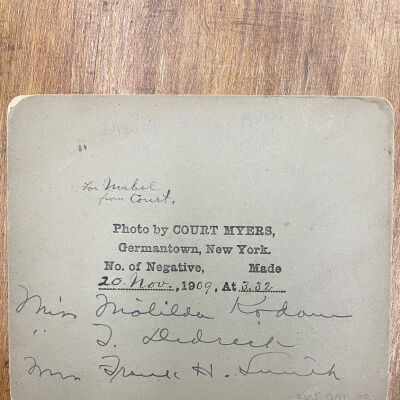 For Mabel
from Court,
Photo by COURT MYERS,
Germantown, New York.
No. of Negative, Made
20 Nov., 1909, At 3.32
Miss Matilda
" T. Dedrick
Mrs Frank H. Smith